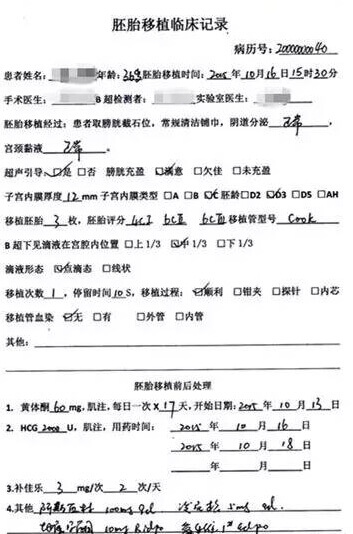 胚胎移植临床记录
病历号：2000000040
患者姓名：年龄：36岁胚胎移植时间：2015年10月16日15时30分
手术医生：B超检测者：实验室医生：
胚胎移植经过：患者取膀胱截石位，常规清洁铺巾，阴道分泌 正常，
宫颈黏液 正常。
超声引导：☑是 □否 膀胱充盈 ☑满意 □欠佳 □未充盈
子宫内膜厚度12mm 子宫内膜类型 □A □B ☑C 胚龄□D2 ☑D3 □D5 □AH
移植胚胎 3 枚，胚胎评分 4CI 6CII 6CIII 移植管型号 Cook
B超下见滴液在宫腔内位置 □上1/3 ☑中1/3 □下1/3
滴液形态 ☑点滴态 □线状
移植次数 1，停留时间10S，移植过程：☑顺利 □钳夹 □探针 □内芯
移植管血染 ☑无 □有 □外管 □内管
其他：
胚胎移植前后处理
1. 黄体酮60mg，肌注，每日一次X17天，开始日期：2015年10月13日
2. HCG 2000 U，肌注，用药时间：2015年10月16日
2015年10月18日
年 月 日
3.补佳乐 3 mg/次 2 次/天
4.其他 阿斯匹林 100mg qd 5mg qd.
10mg Bid po